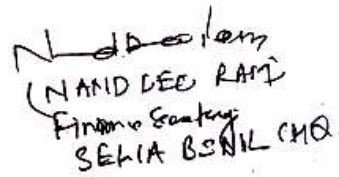 (NAND LEO RAM)
Finance Secretary
SEWA BSNL CHQ